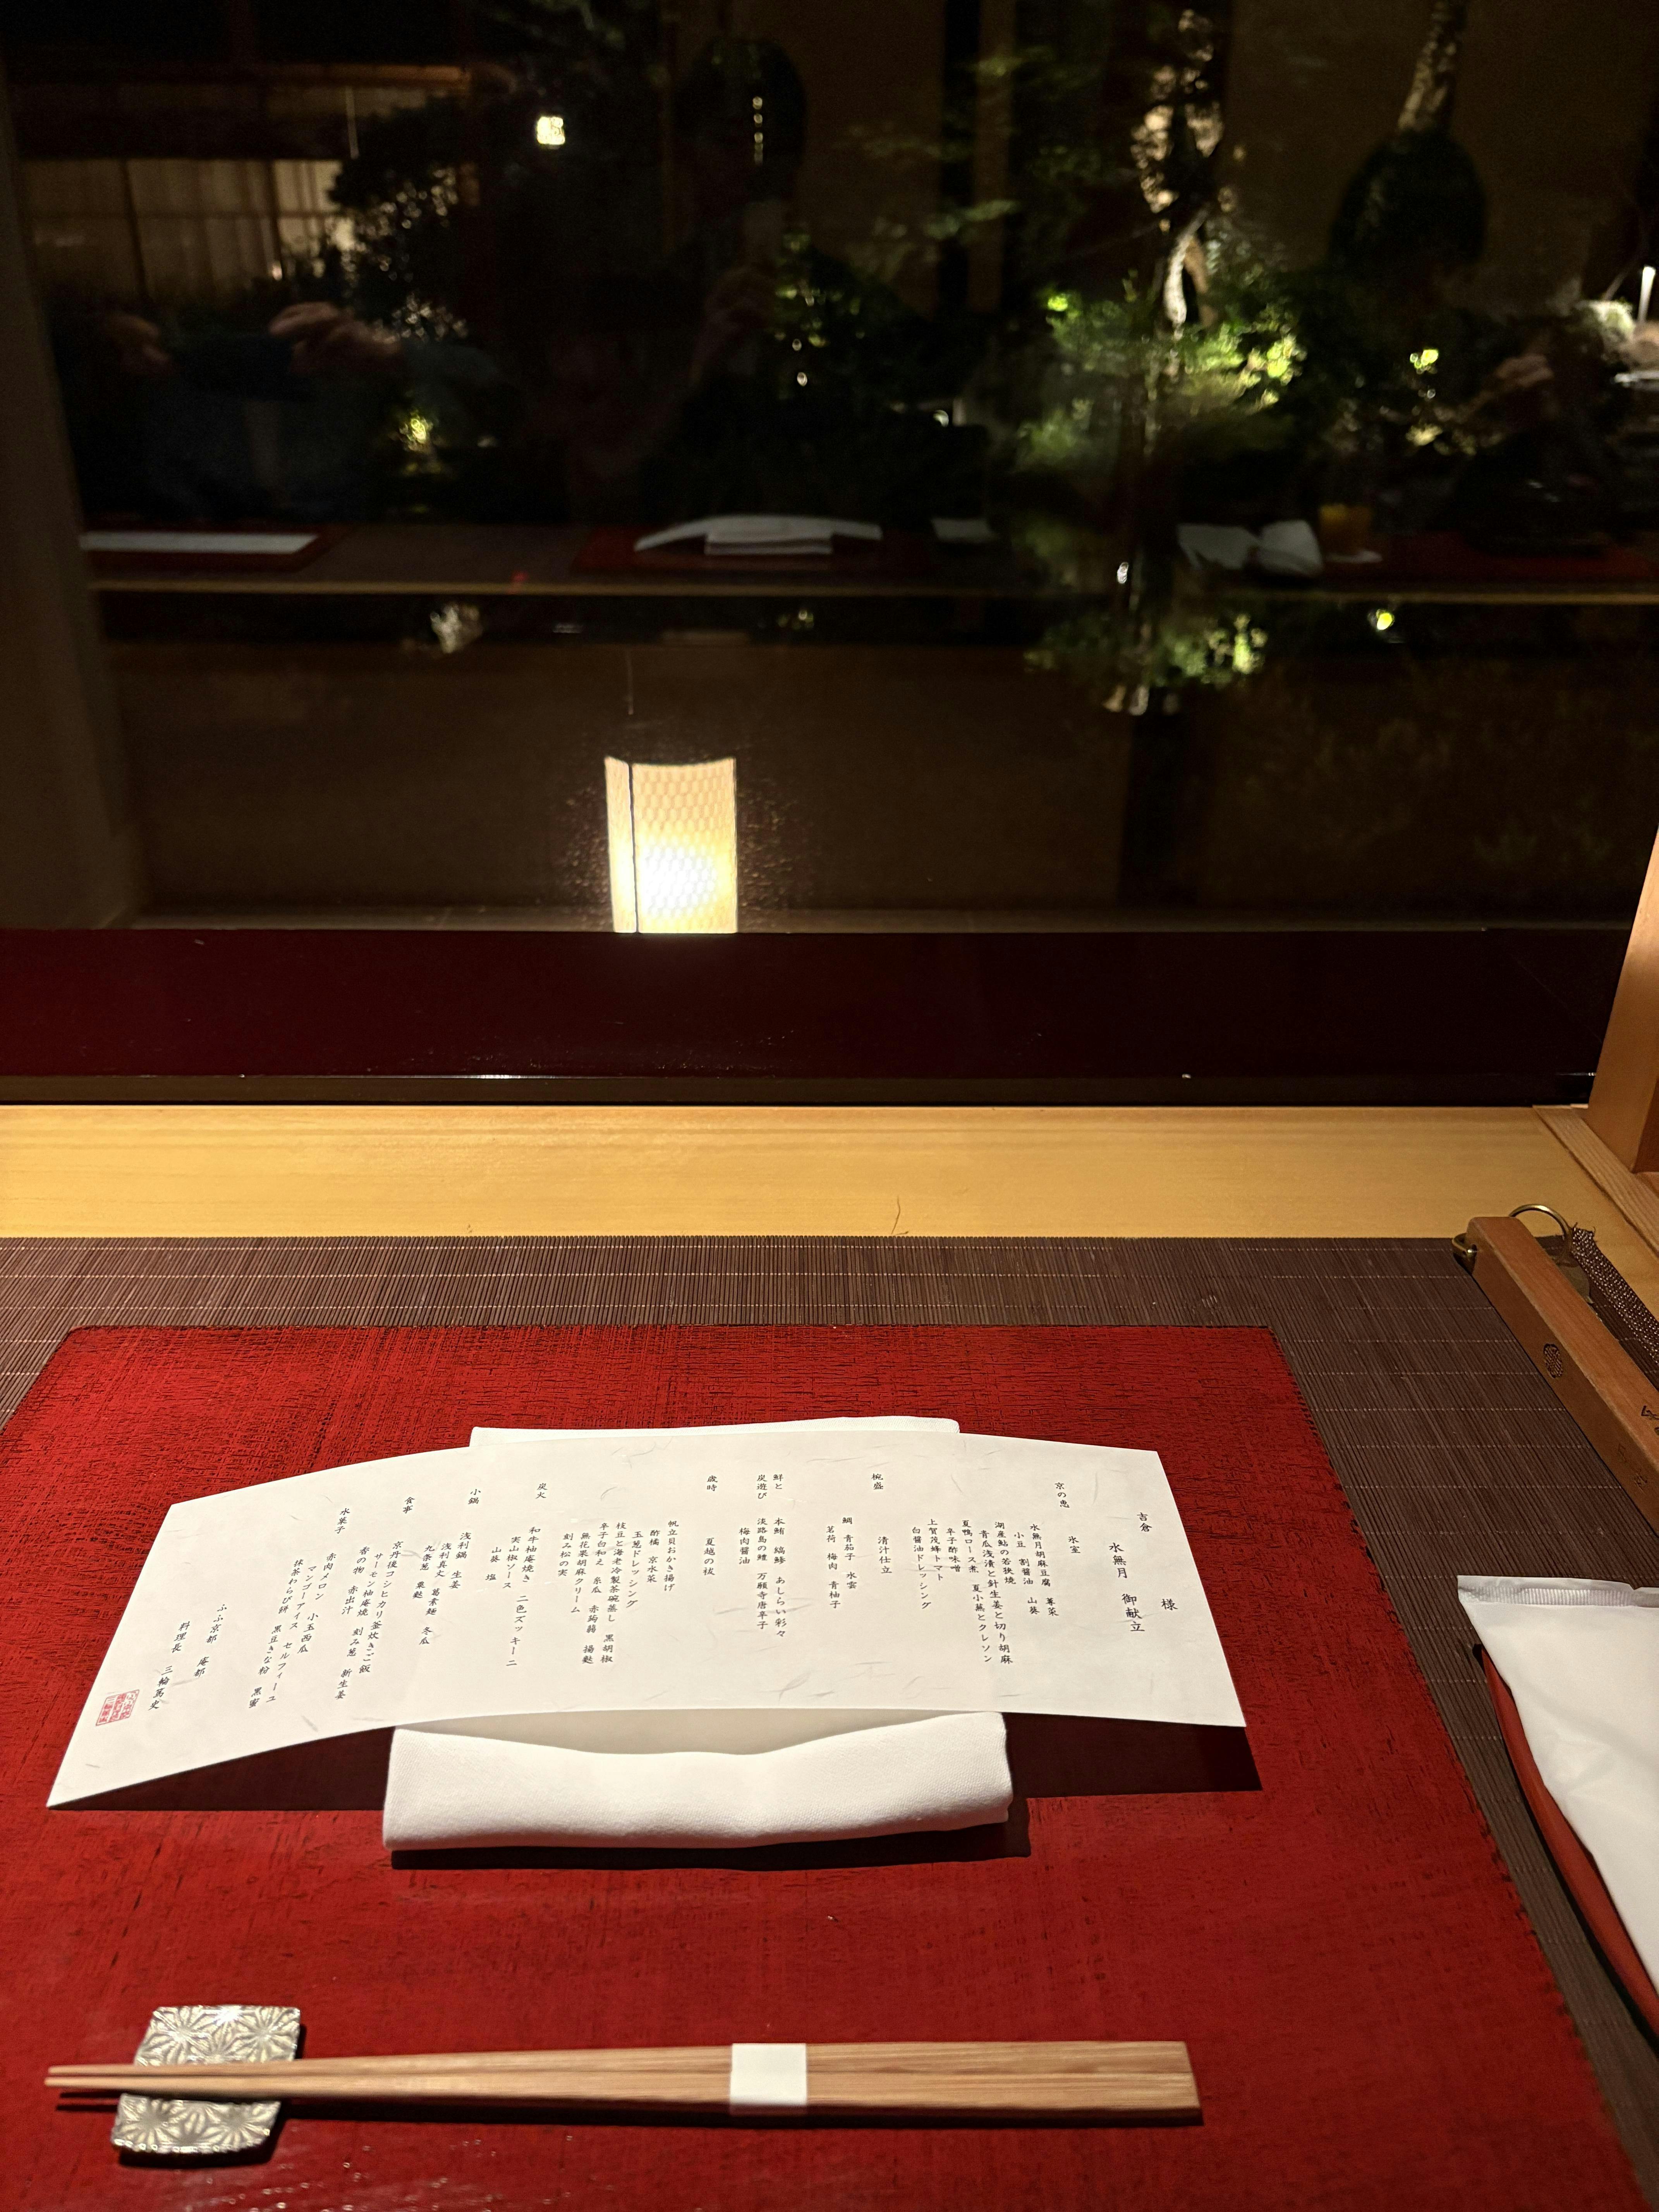 吉倉 様
水無月 御献立
京の恵
氷室
水無月胡麻豆腐 蓴菜
小豆 割醤油 山葵
湖産鮎の若狭焼
青瓜浅漬と針生姜と切り胡麻
夏鴨ロース煮 夏小蕪とクレソン
辛子酢味噌
上賀茂蜂トマト
白醤油ドレッシング
椀盛
清汁仕立
鱧 青茄子 水雲
茗荷 梅肉 青柚子
鮮と
炭遊び
本鮪 縞鯵 あしらい彩々
淡路島の鱧 万願寺唐辛子
梅肉醤油
歳時
夏越の祓
帆立貝おかき揚げ
酢橘 京水菜
玉葱ドレッシング
枝豆と海老冷製茶碗蒸し 黒胡椒
辛子白和え 糸瓜 赤蒟蒻 揚麩
無花果胡麻クリーム
刻み松の実
炭火
和牛柚庵焼き 二色ズッキーニ
実山椒ソース
山葵 塩
小鍋
浅利鍋 生姜
浅利真丈 葛素麺 冬瓜
九条葱 粟麩
食事
京丹後コシヒカリ釜炊きご飯
サーモン柚庵焼 刻み葱 新生姜
香の物 赤出汁
水菓子
赤肉メロン 小玉西瓜
マンゴーアイス セルフィーユ
抹茶わらび餅 黒豆きな粉 黒蜜
ふふ京都 庵都
料理長 三輪篤史